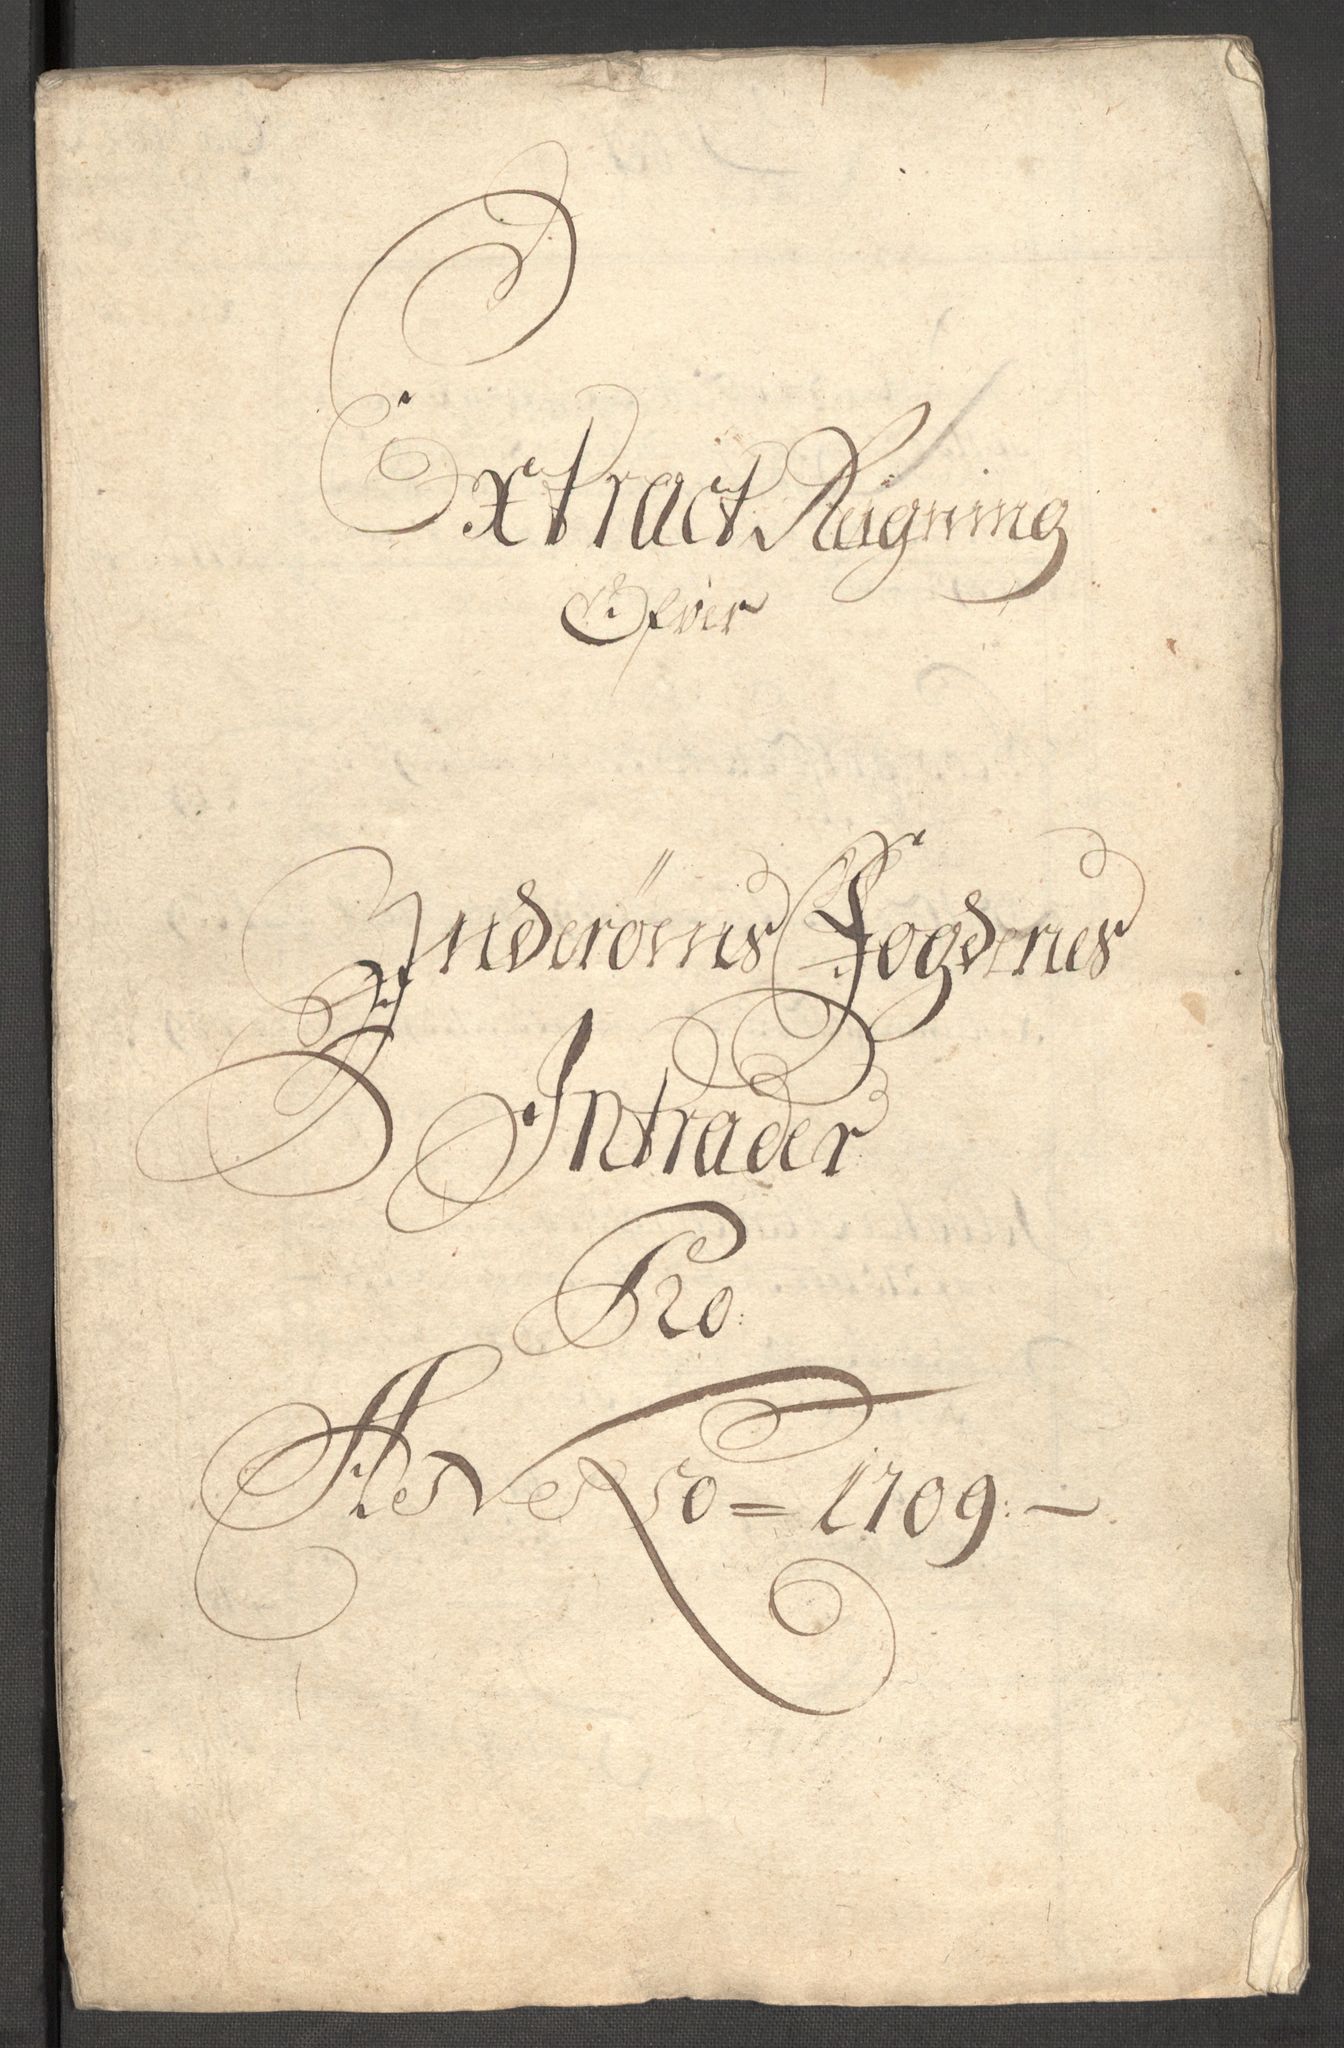 Extract Reigning
Ofver
Inderøens Fogderies
Intrader
Pro
Anno = 1709: